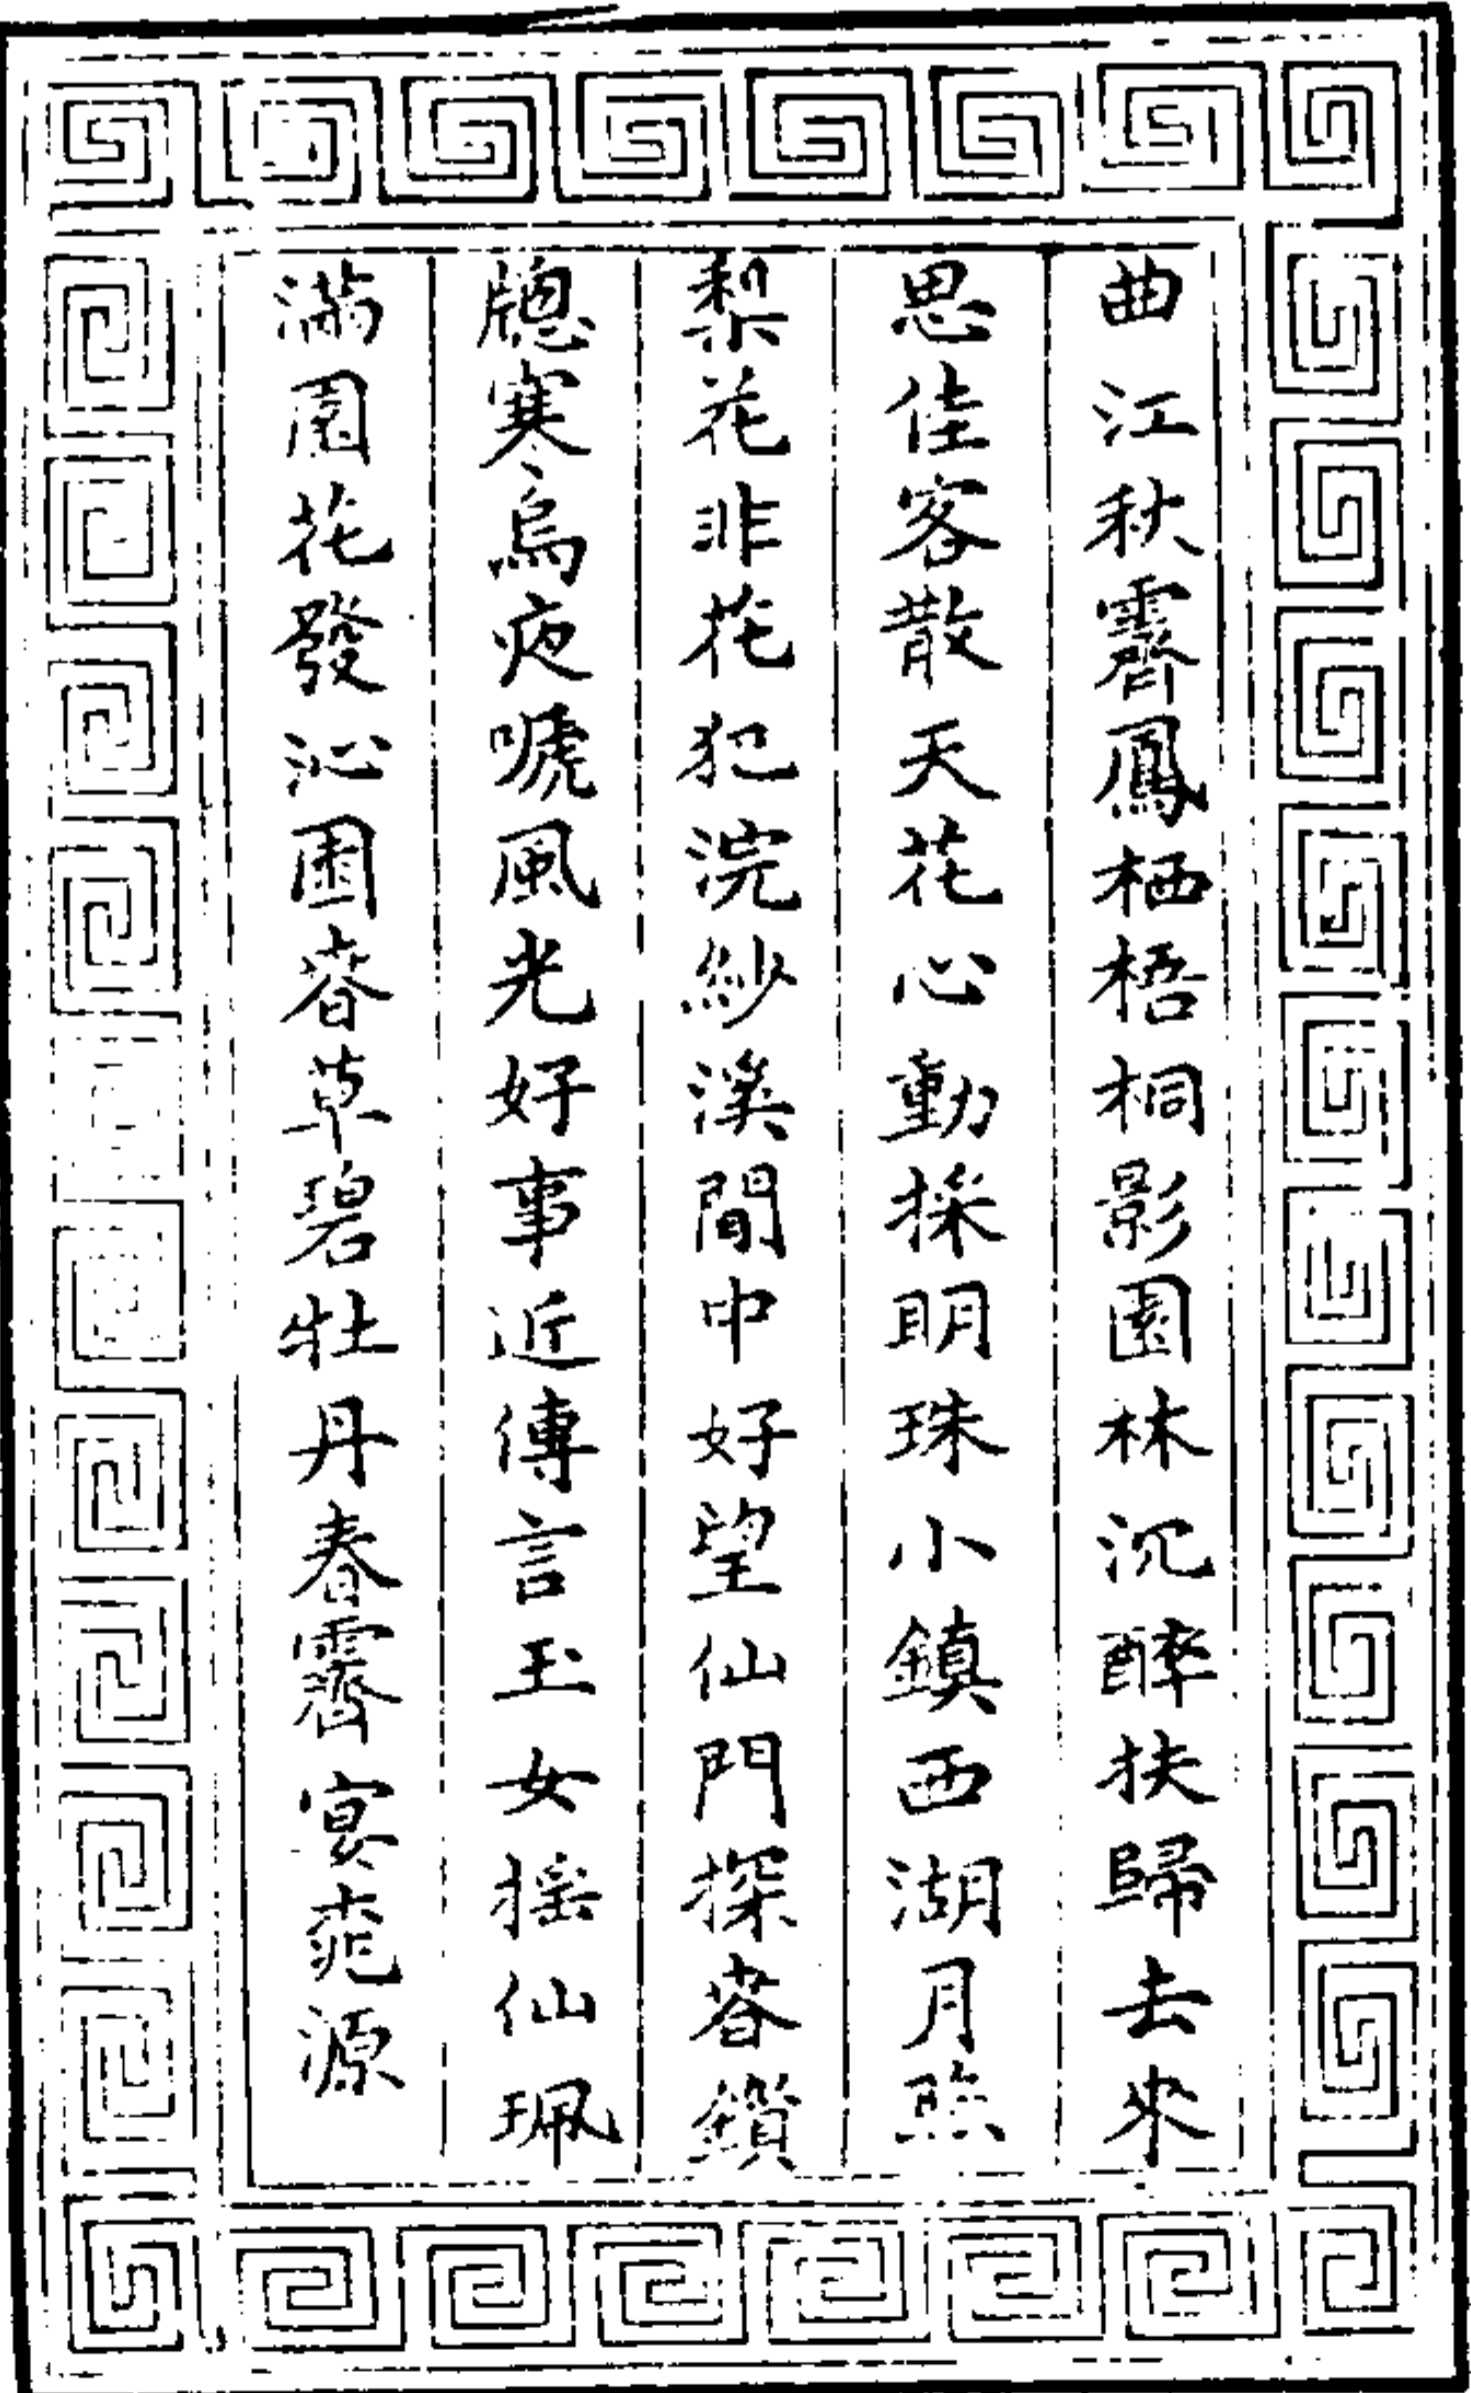 曲江秋霽鳳栖梧桐影園林沉醉扶歸去來
思佳客散天花心動採明珠小鎮西湖月照
梨花非花犯浣紗溪閒中好望仙門探春鎖
牕寒烏夜嗁風光好事近傳言玉女搖仙珮
滿園花發沁園春草碧牡丹春霽宴桃源